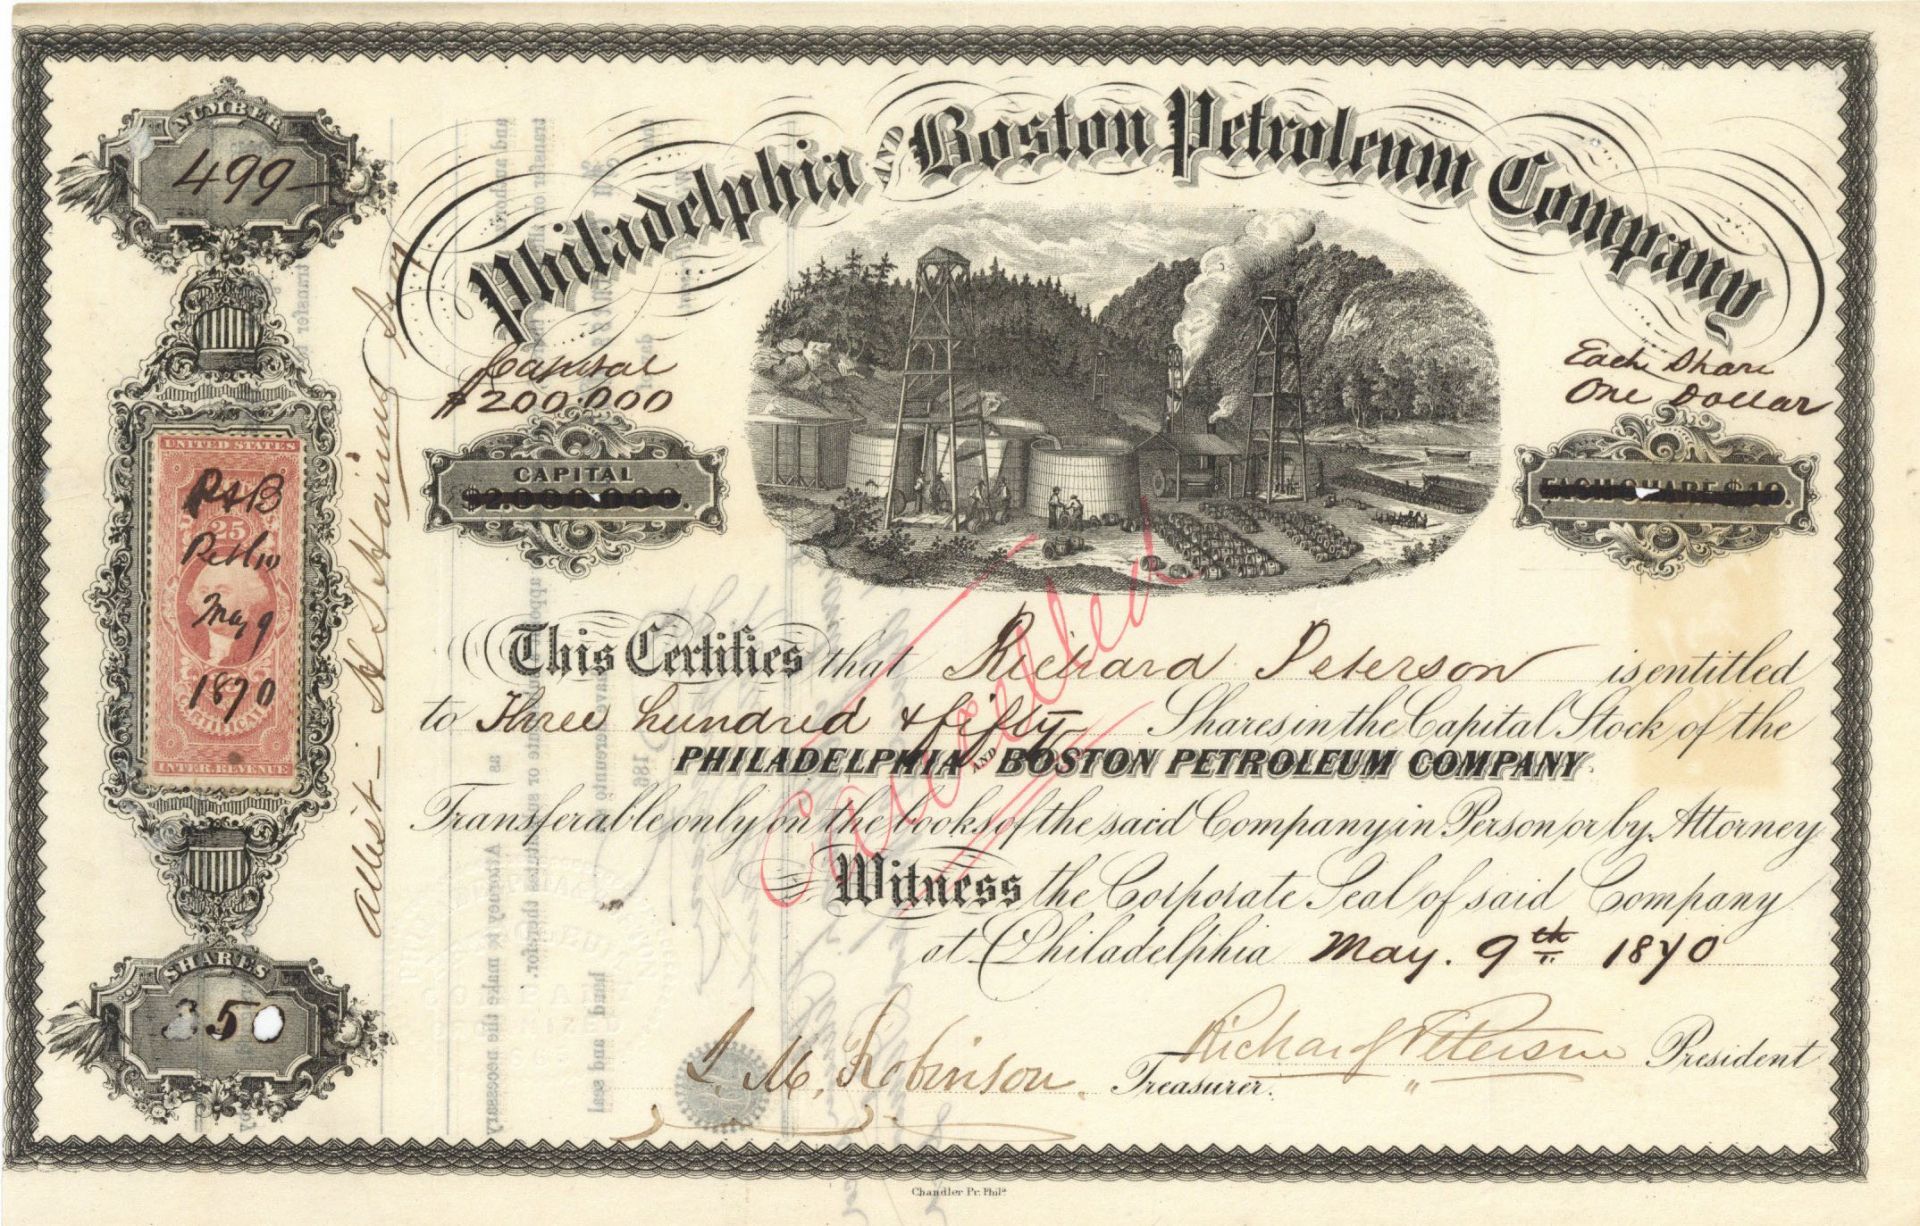 NUMBER
499
Philadelphia AND Boston Petroleum Company
Capital
$200.000
CAPITAL
$2.000.000
Each Share
One Dollar
EACH SHARE $10.
UNITED STATES
25
P & B
May 9
1870
INTER. REVENUE
Attest
Cancelled
This Certifies that Richard Peterson is entitled
to Three hundred & fifty Shares in the Capital Stock of the
PHILADELPHIA AND BOSTON PETROLEUM COMPANY
Transferable only on the books of the said Company in Person or by Attorney
Witness the Corporate Seal of said Company
at Philadelphia May. 9th 1870
SHARES
350
Robinson Treasurer.
Richard Peterson President
Chandler Pr. Phila